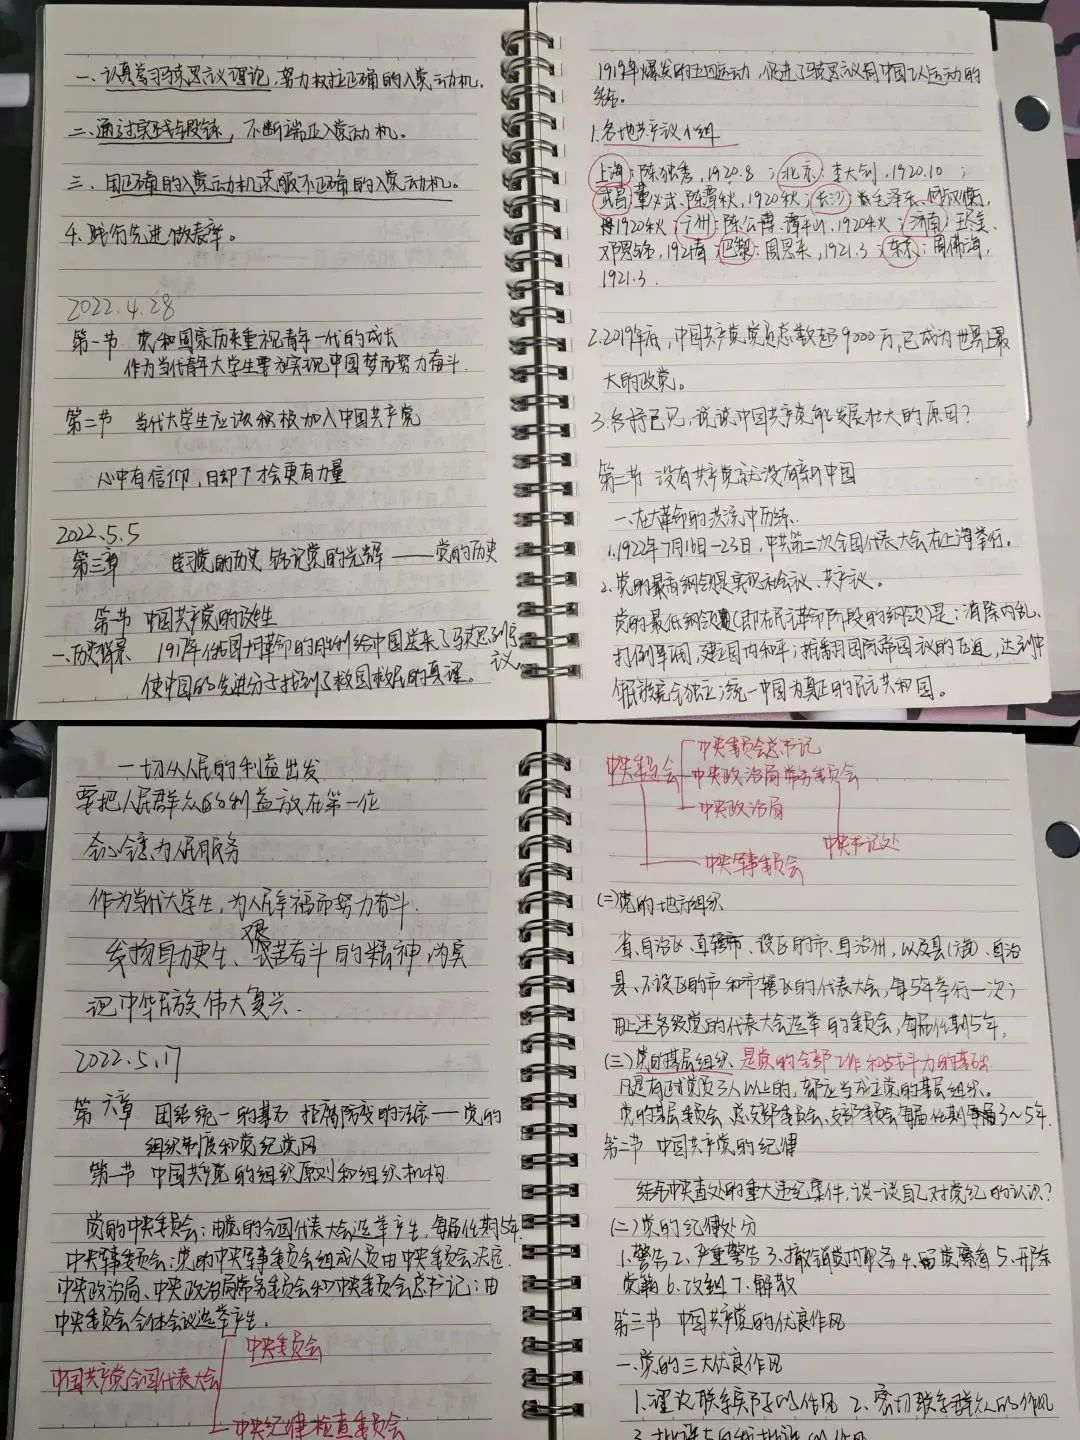 一、认真学习马克思主义理论,努力树立正确的入党动机.
二、通过实践锻炼,不断端正入党动机。
三、用正确的入党动机克服不正确的入党动机。
4.践行先进做表率。
2022.4.28
第一节 党和国家历来重视青年一代的成长
作为当代青年大学生要为实现中国梦而努力奋斗.
第二节 当代大学生应该积极加入中国共产党
心中有信仰,脚下才会更有力量
2022.5.5
第三章 党的历史 铭记党的光辉——党的历史
第一节 中国共产党的诞生
一、历史背景 1917年俄国十月革命的胜利给中国送来了马克思列宁主义
使中国的先进分子找到了救国救民的真理。
1919年爆发的五四运动,促进了马克思主义同中国工人运动的
结合。
1.各地共产主义小组
上海:陈独秀,1920.8;北京:李大钊,1920.10;
武昌:董必武、陈潭秋,1920秋;长沙:毛泽东、何叔衡,
1920秋;广州:陈公博、谭平山,1920秋;济南:王尽美、
邓恩铭,1921;巴黎:周恩来,1921.3;东京:周佛海,
1921.3.
2.2019年底,中国共产党党员总数超9000万,已成为世界上最
大的政党。
3.各抒己见,说说中国共产党能发展壮大的原因?
第二节 没有共产党就没有新中国
一、在大革命的洪流中历练.
1.1922年7月16日-23日,中共第二次全国代表大会在上海举行。
2.党的最高纲领是实现社会主义、共产主义。
党的最低纲领(即在民主革命阶段的纲领)是:消除内乱、
打倒军阀,建立国内和平;推翻国际帝国主义的压迫,达到中
华民族完全独立;统一中国为真正的民主共和国。
一切从人民的利益出发
要把人民群众的利益放在第一位
全心全意为人民服务
作为当代大学生,为人民幸福而努力奋斗.
发扬自力更生、艰苦奋斗的精神,为实
现中华民族伟大复兴.
2022.5.17
第六章 团结统一的基石 拒腐防变的法宝——党的
组织制度和党纪党风
第一节 中国共产党的组织原则和组织机构
党的中央委员会:由党的全国代表大会选举产生,每届任期5年.
中央军事委员会:党的中央军事委员会组成人员由中央委员会决定.
中央政治局、中央政治局常务委员会和中央委员会总书记:由
中央委员会全体会议选举产生.
中央委员会
中国共产党全国代表大会
中央纪律检查委员会
中央委员会总书记
中央委员会 中央政治局常务委员会
中央政治局
中央书记处
中央军事委员会
(二)党的地方组织
省、自治区、直辖市、设区的市、自治州,以及县(旗)、自治
县、不设区的市和市辖区的代表大会,每5年举行一次;
由上述各级党的代表大会选举的委员会,每届任期5年。
(三)党的基层组织 是党的全部工作和战斗力的基础
凡是有正式党员3人以上的,都应当成立党的基层组织。
党的基层委员会、总支部委员会、支部委员会每届任期3~5年.
第二节 中国共产党的纪律
结合中央查处的重大违纪案件,谈一谈自己对党纪的认识?
(二)党的纪律处分
1.警告 2.严重警告 3.撤销党内职务 4.留党察看 5.开除
党籍 6.改组 7.解散
第三节 中国共产党的优良作风
一、党的三大优良作风
1.理论联系实际的作风 2.密切联系群众的作风